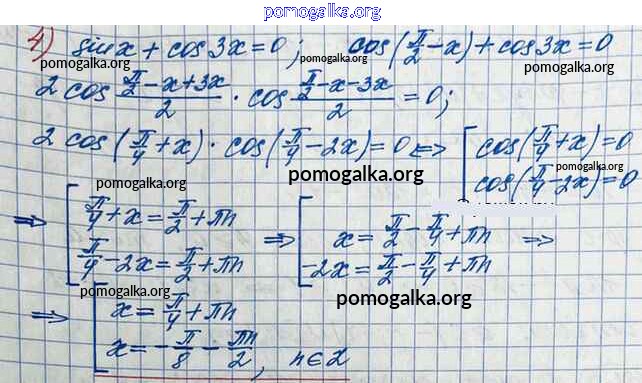 pomogalka.org
4) sin x + cos 3x = 0; cos(π/2 - x) + cos 3x = 0
pomogalka.org pomogalka.org pomogalka.org
2 cos (π/2 - x + 3x)/2 · cos (π/2 - x - 3x)/2 = 0;
2 cos(π/4 + x) · cos(π/4 - 2x) = 0 <=> [ cos(π/4 + x) = 0
cos(π/4 - 2x) = 0
pomogalka.org pomogalka.org pomogalka.org
=> [ π/4 + x = π/2 + πn
π/4 - 2x = π/2 + πn
=> [ x = π/2 - π/4 + πn
-2x = π/2 - π/4 + πn =>
pomogalka.org pomogalka.org
=> [ x = π/4 + πn
x = - π/8 - πn/2, n ∈ Z